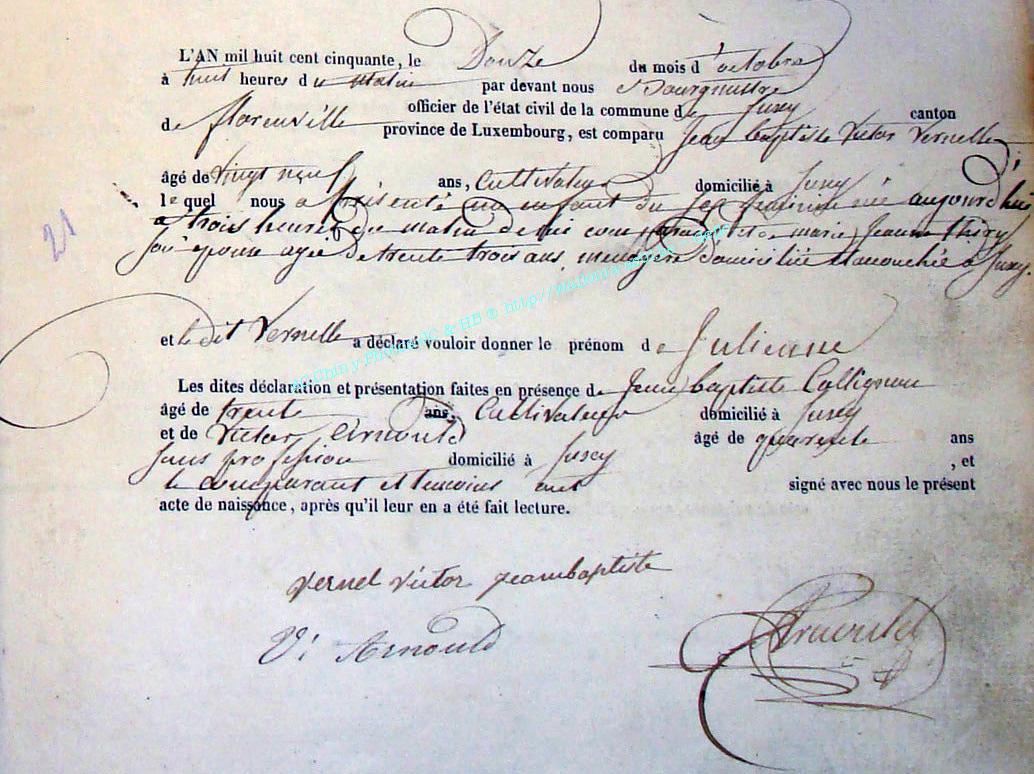 L'AN mil huit cent cinquante, le Douze du mois d'octobre
à huit heures du matin par devant nous Bourgmestre
officier de l'état civil de la commune de Jusey canton
de florenville province de Luxembourg, est comparu Jean baptiste Victor Vernelle
âgé de vingt neuf ans, Cultivateur domicilié à Jusey
lequel nous a présenté un enfant du sex feminin né aujourd'hui
a trois heures du matin de lui comparant et de marie Jeanne Thiry
son épouse agée de trente trois ans, menagère domiciliée et accouchée à Jusey
21
et le dit Vernelle a déclaré vouloir donner le prénom de Julienne
Les dites déclaration et présentation faites en présence de Jean baptiste Collignon
âgé de trente ans, Cultivateur domicilié à Jusey
et de Victor Arnould âgé de quarente ans
sans profession domicilié à Jusey , et
le comparant et temoins ont signé avec nous le présent
acte de naissance, après qu'il leur en a été fait lecture.
vernel victor jeanbaptiste
V: Arnould
Arnould